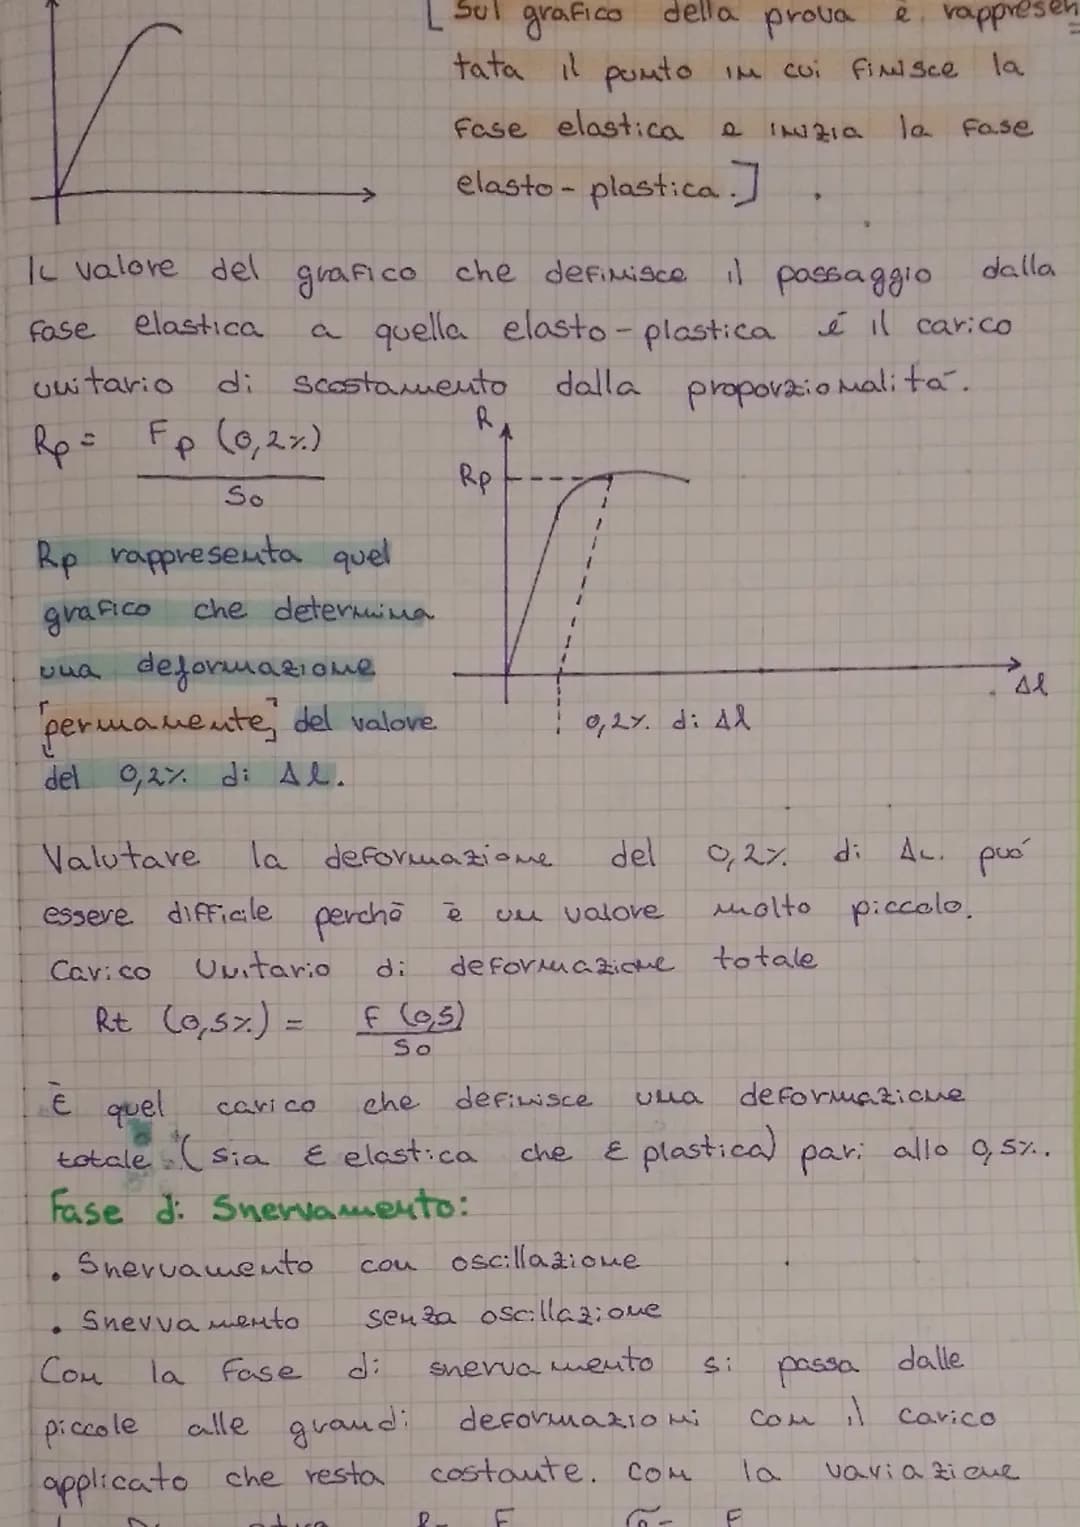 [Sul grafico della prova è rappresen
tata il punto in cui finisce la
fase elastica e inizia la fase
elasto-plastica.]
Il valore del grafico che definisce il passaggio dalla
fase elastica a quella elasto-plastica é il carico
unitario di scostamento dalla proporzionalità.
Rp = Fp (0,2%)
So
R
Rp
Δl
0,2% di Δl
Rp rappresenta quel
grafico che determina
una deformazione
[permanente] del valore
del 0,2% di Δl.
Valutare la deformazione del 0,2% di ΔL. può
essere difficile perchè è un valore molto piccolo.
Carico Unitario di deformazione totale
Rt (0,5%) = F (0,5)
So
È quel carico che definisce una deformazione
totale (sia ε elastica che ε plastica) pari allo 0,5%.
Fase di Snervamento:
• Snervamento con oscillazione
• Snervamento senza oscillazione
Con la fase di snervamento si passa dalle
piccole alle grandi deformazioni con il carico
applicato che resta costante. Con la variazione